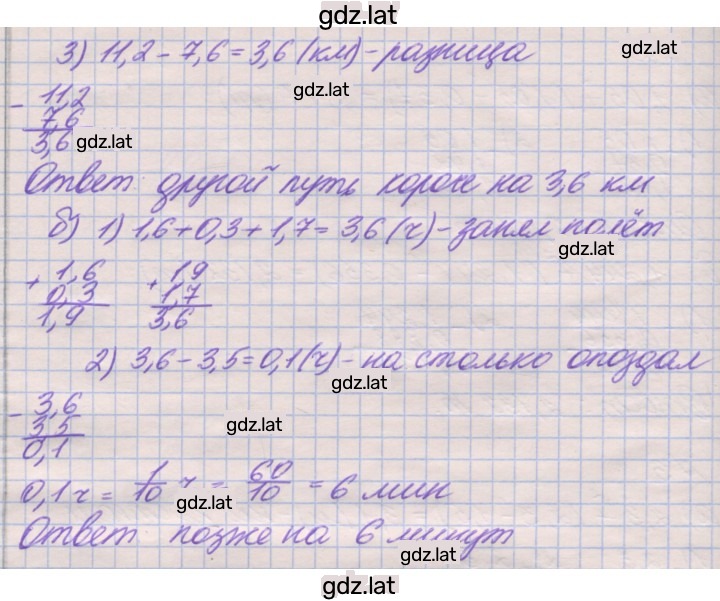 gdz.lat
3) 11,2 - 7,6 = 3,6 (км) - разница
gdz.lat
gdz.lat
- 11,2
7,6
3,6
gdz.lat
Ответ другой путь короче на 3,6 км
б) 1) 1,6 + 0,3 + 1,7 = 3,6 (ч) - занял полёт
gdz.lat
+ 1,6
0,3
1,9
+ 1,9
1,7
3,6
2) 3,6 - 3,5 = 0,1 (ч) - на столько опоздал
gdz.lat
- 3,6
3,5
0,1
gdz.lat
0,1 ч = 1/10 ч = 60/10 = 6 мин
gdz.lat
Ответ позже на 6 минут
gdz.lat
gdz.lat